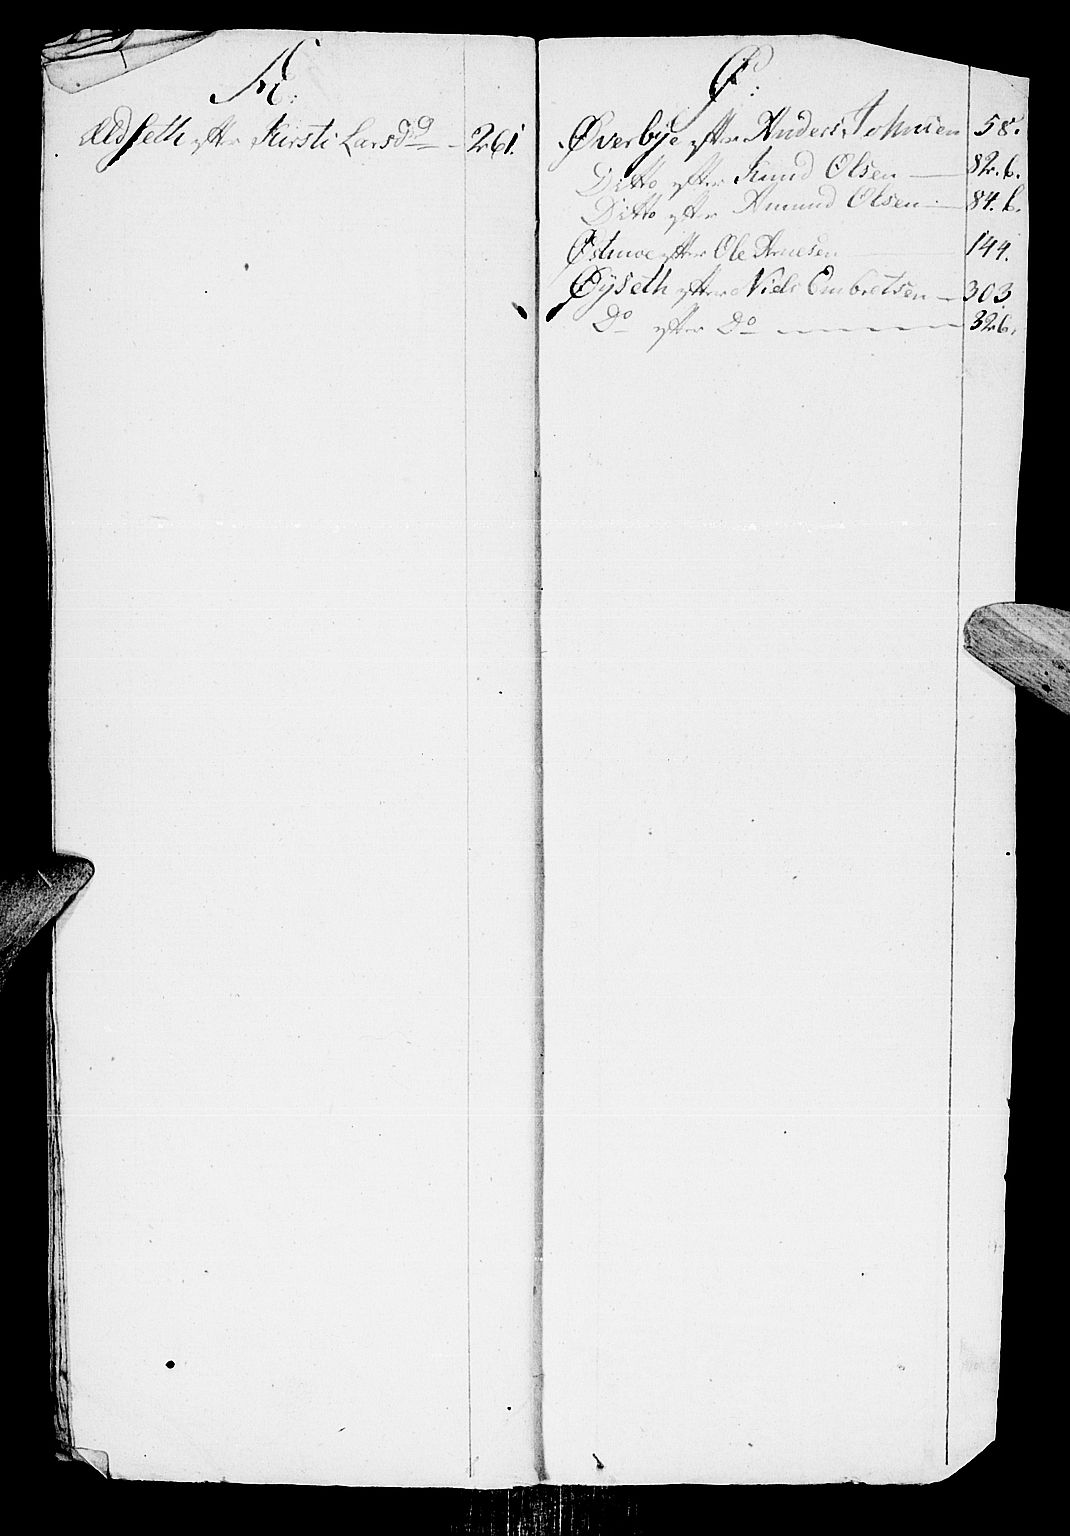 Æ:
Ædseth efter Kirsti Larsd:r — 261.
Ø:
Øverbÿe efter Anders Johnsen 58.
Ditto efter Knud Olsen — 82. b.
Ditto efter Amund Olsen — 84. b.
Østmoe efter Ole Arnesen — 144.
Øÿseth efter Niels Embretsen — 303
Do efter Do — — — — — 326.